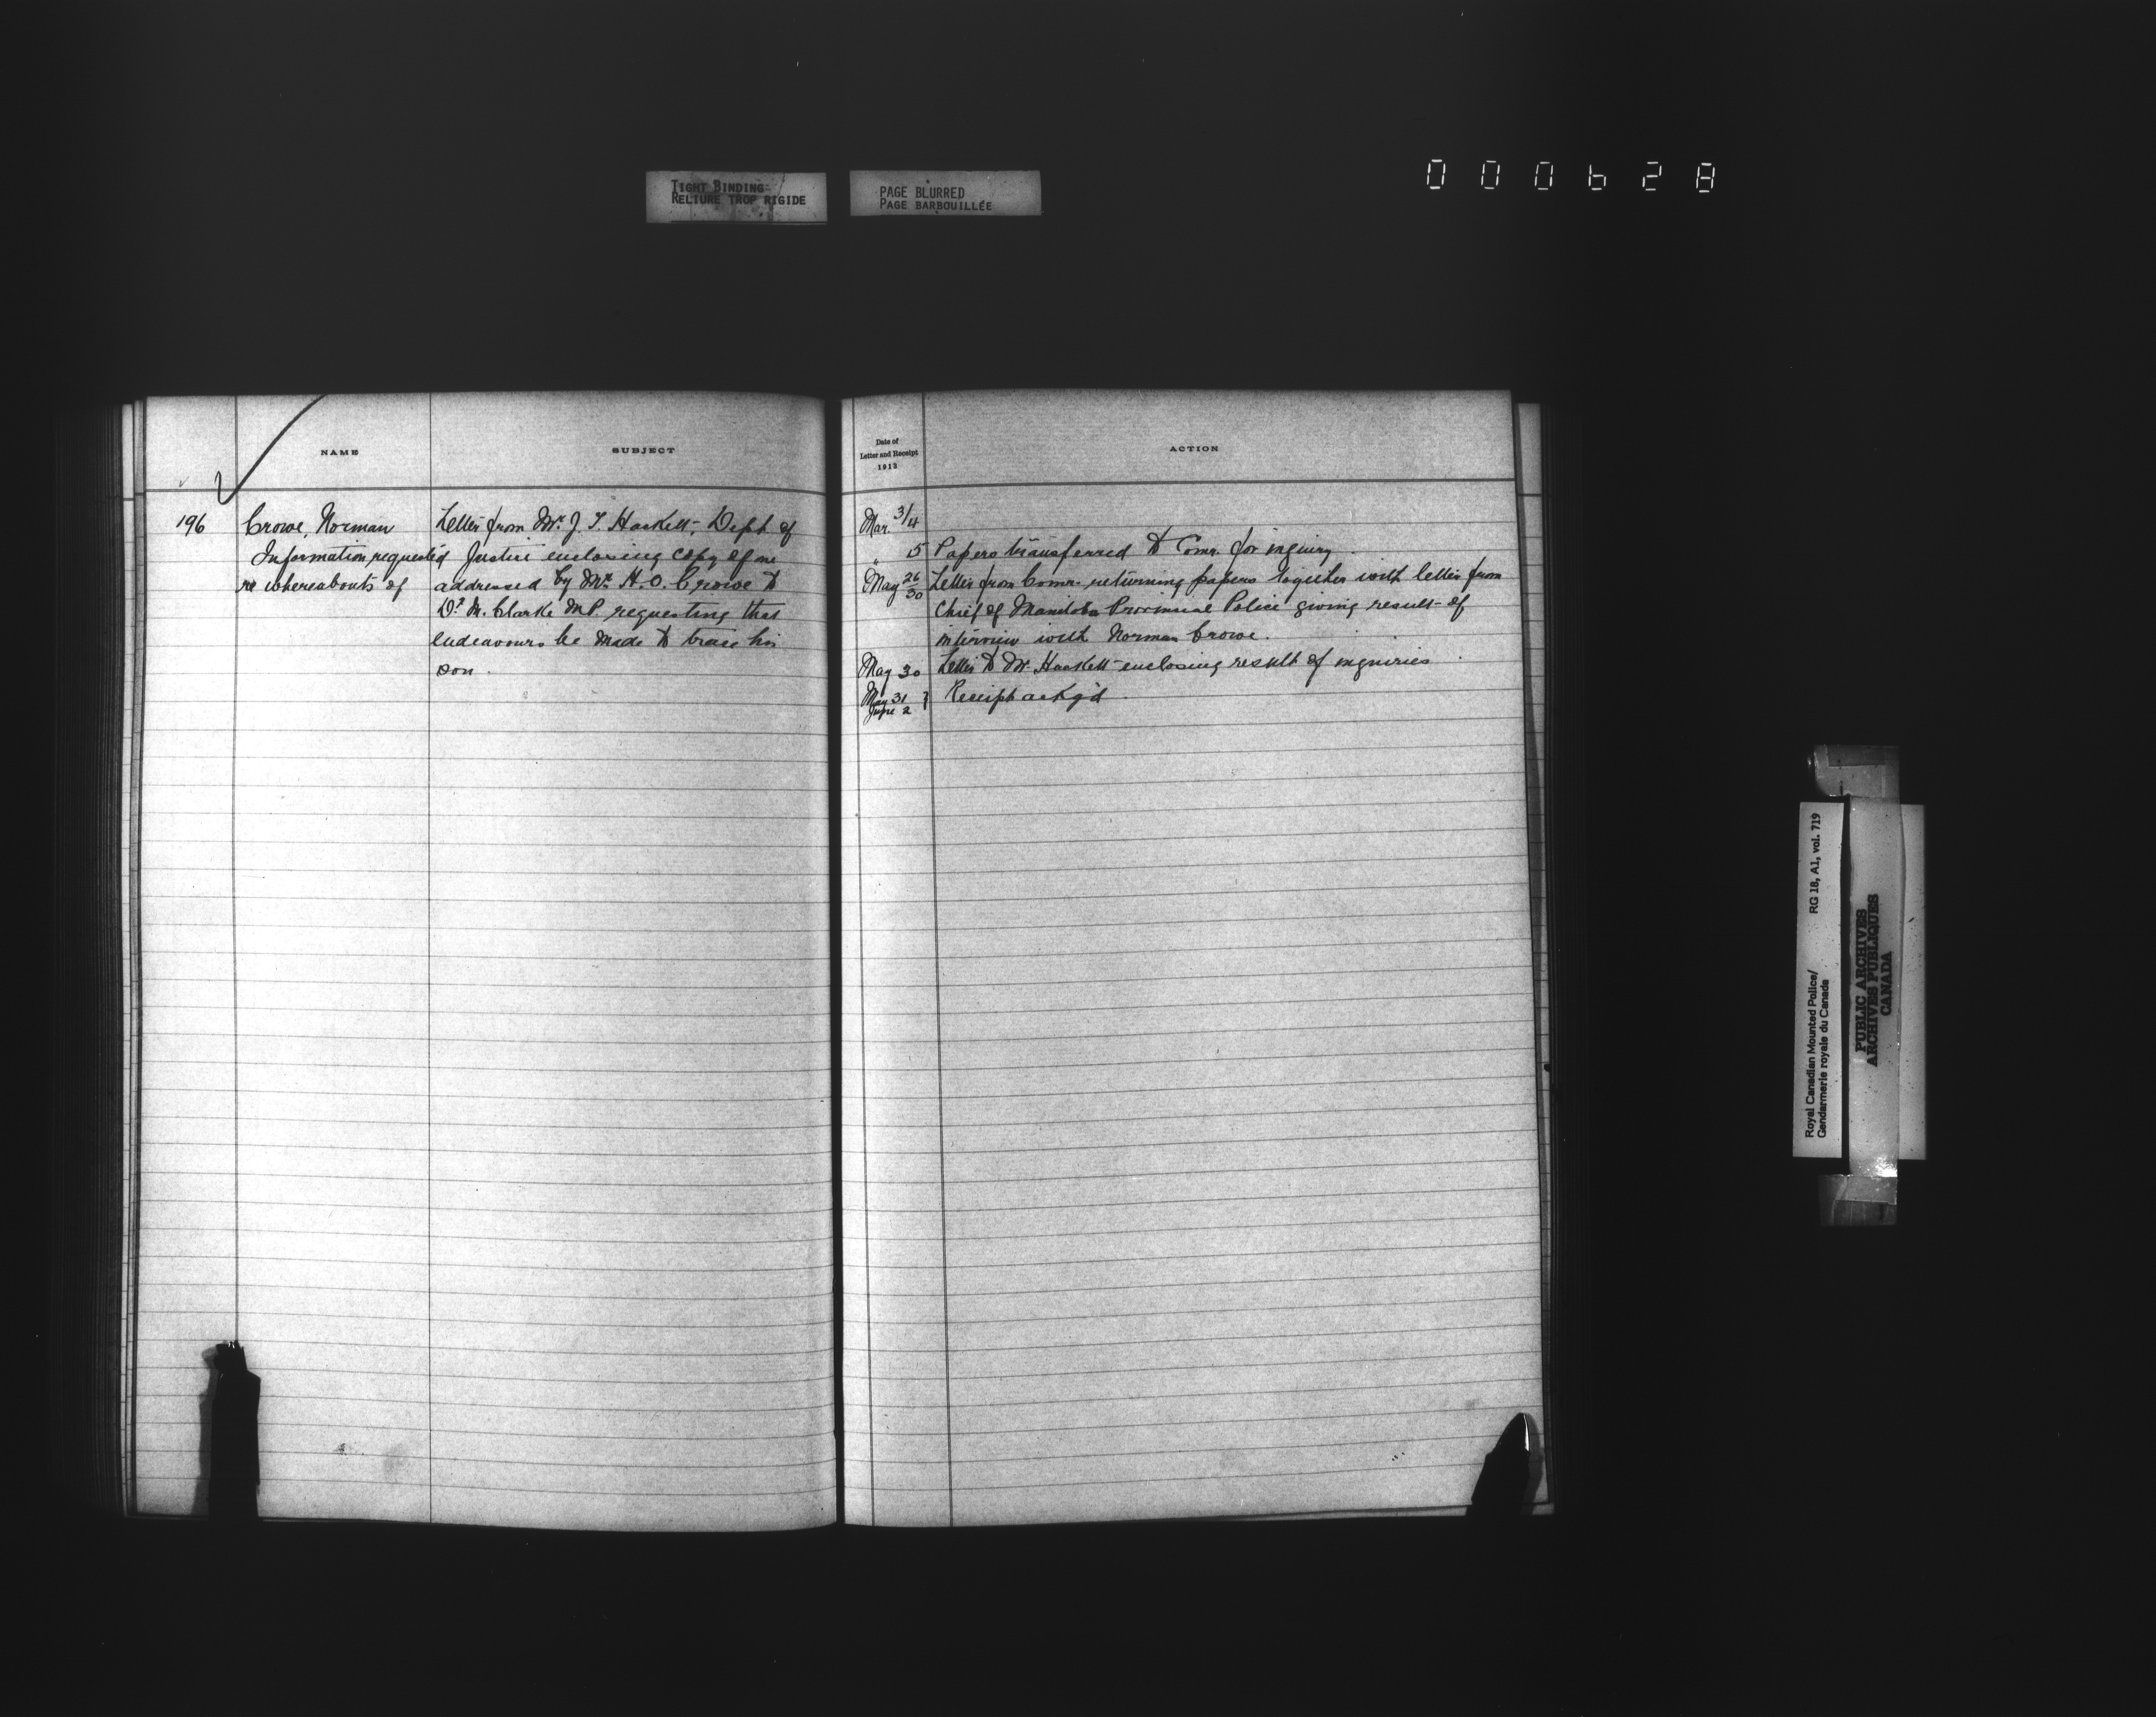 TIGHT BINDING
RELIURE TROP RIGIDE
PAGE BLURRED
PAGE BARBOUILLÉE
000628
NAME
SUBJECT
196
Crowe, Norman
Information requested
re whereabouts of
Letter from Mr. J. T. Haskett, Dept of
Justice enclosing copy of one
addressed by Mr. H. O. Crowe to
Dr. M. Clarke M.P. requesting that
endeavours be made to trace his
son.
Date of
Letter and Receipt
1912
ACTION
Mar. 3/4
" 5 Papers transferred to Comr. for inquiry.
May 26/30 Letter from Comr. returning papers together with letter from
Chief of Manitoba Provincial Police giving result of
interview with Norman Crowe.
May 30 Letter to Mr. Haskett enclosing result of inquiries.
May 31
June 2 } Receipt ackg'd.
Royal Canadian Mounted Police/
Gendarmerie royale du Canada
RG 18, A1, vol. 719
PUBLIC ARCHIVES
ARCHIVES PUBLIQUES
CANADA